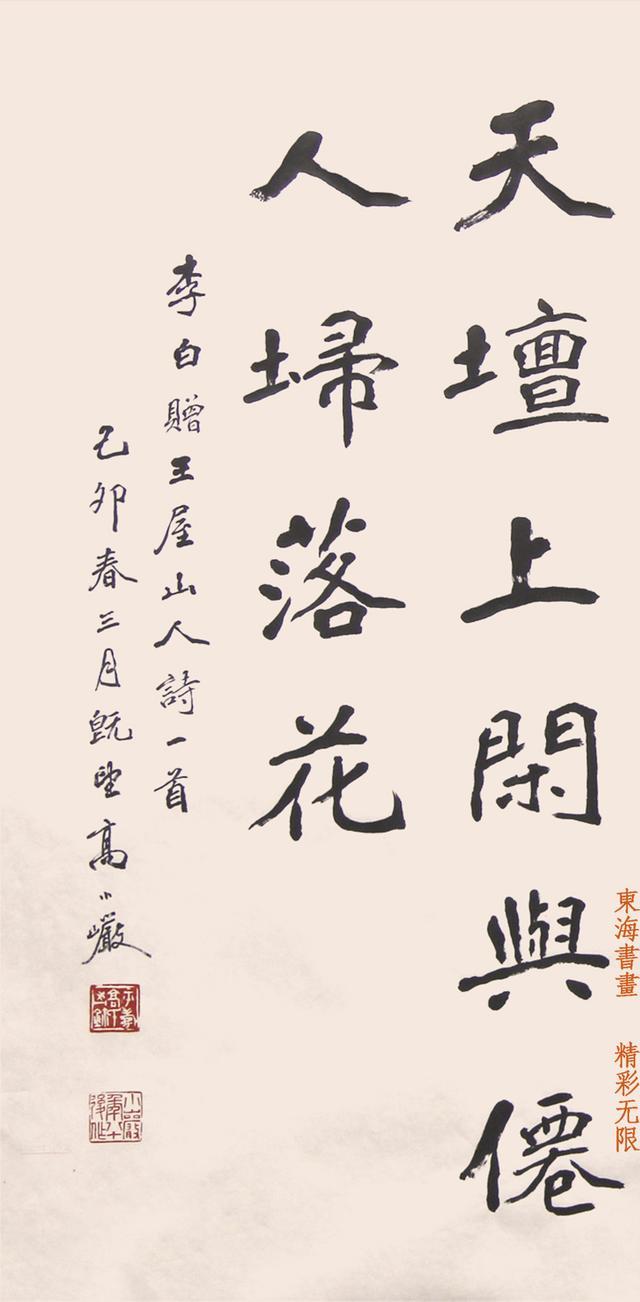 天壇上閑與僊
人埽落花
李白贈王屋山人詩一首
己卯春三月既望高小巖
東海書畫 精彩无限